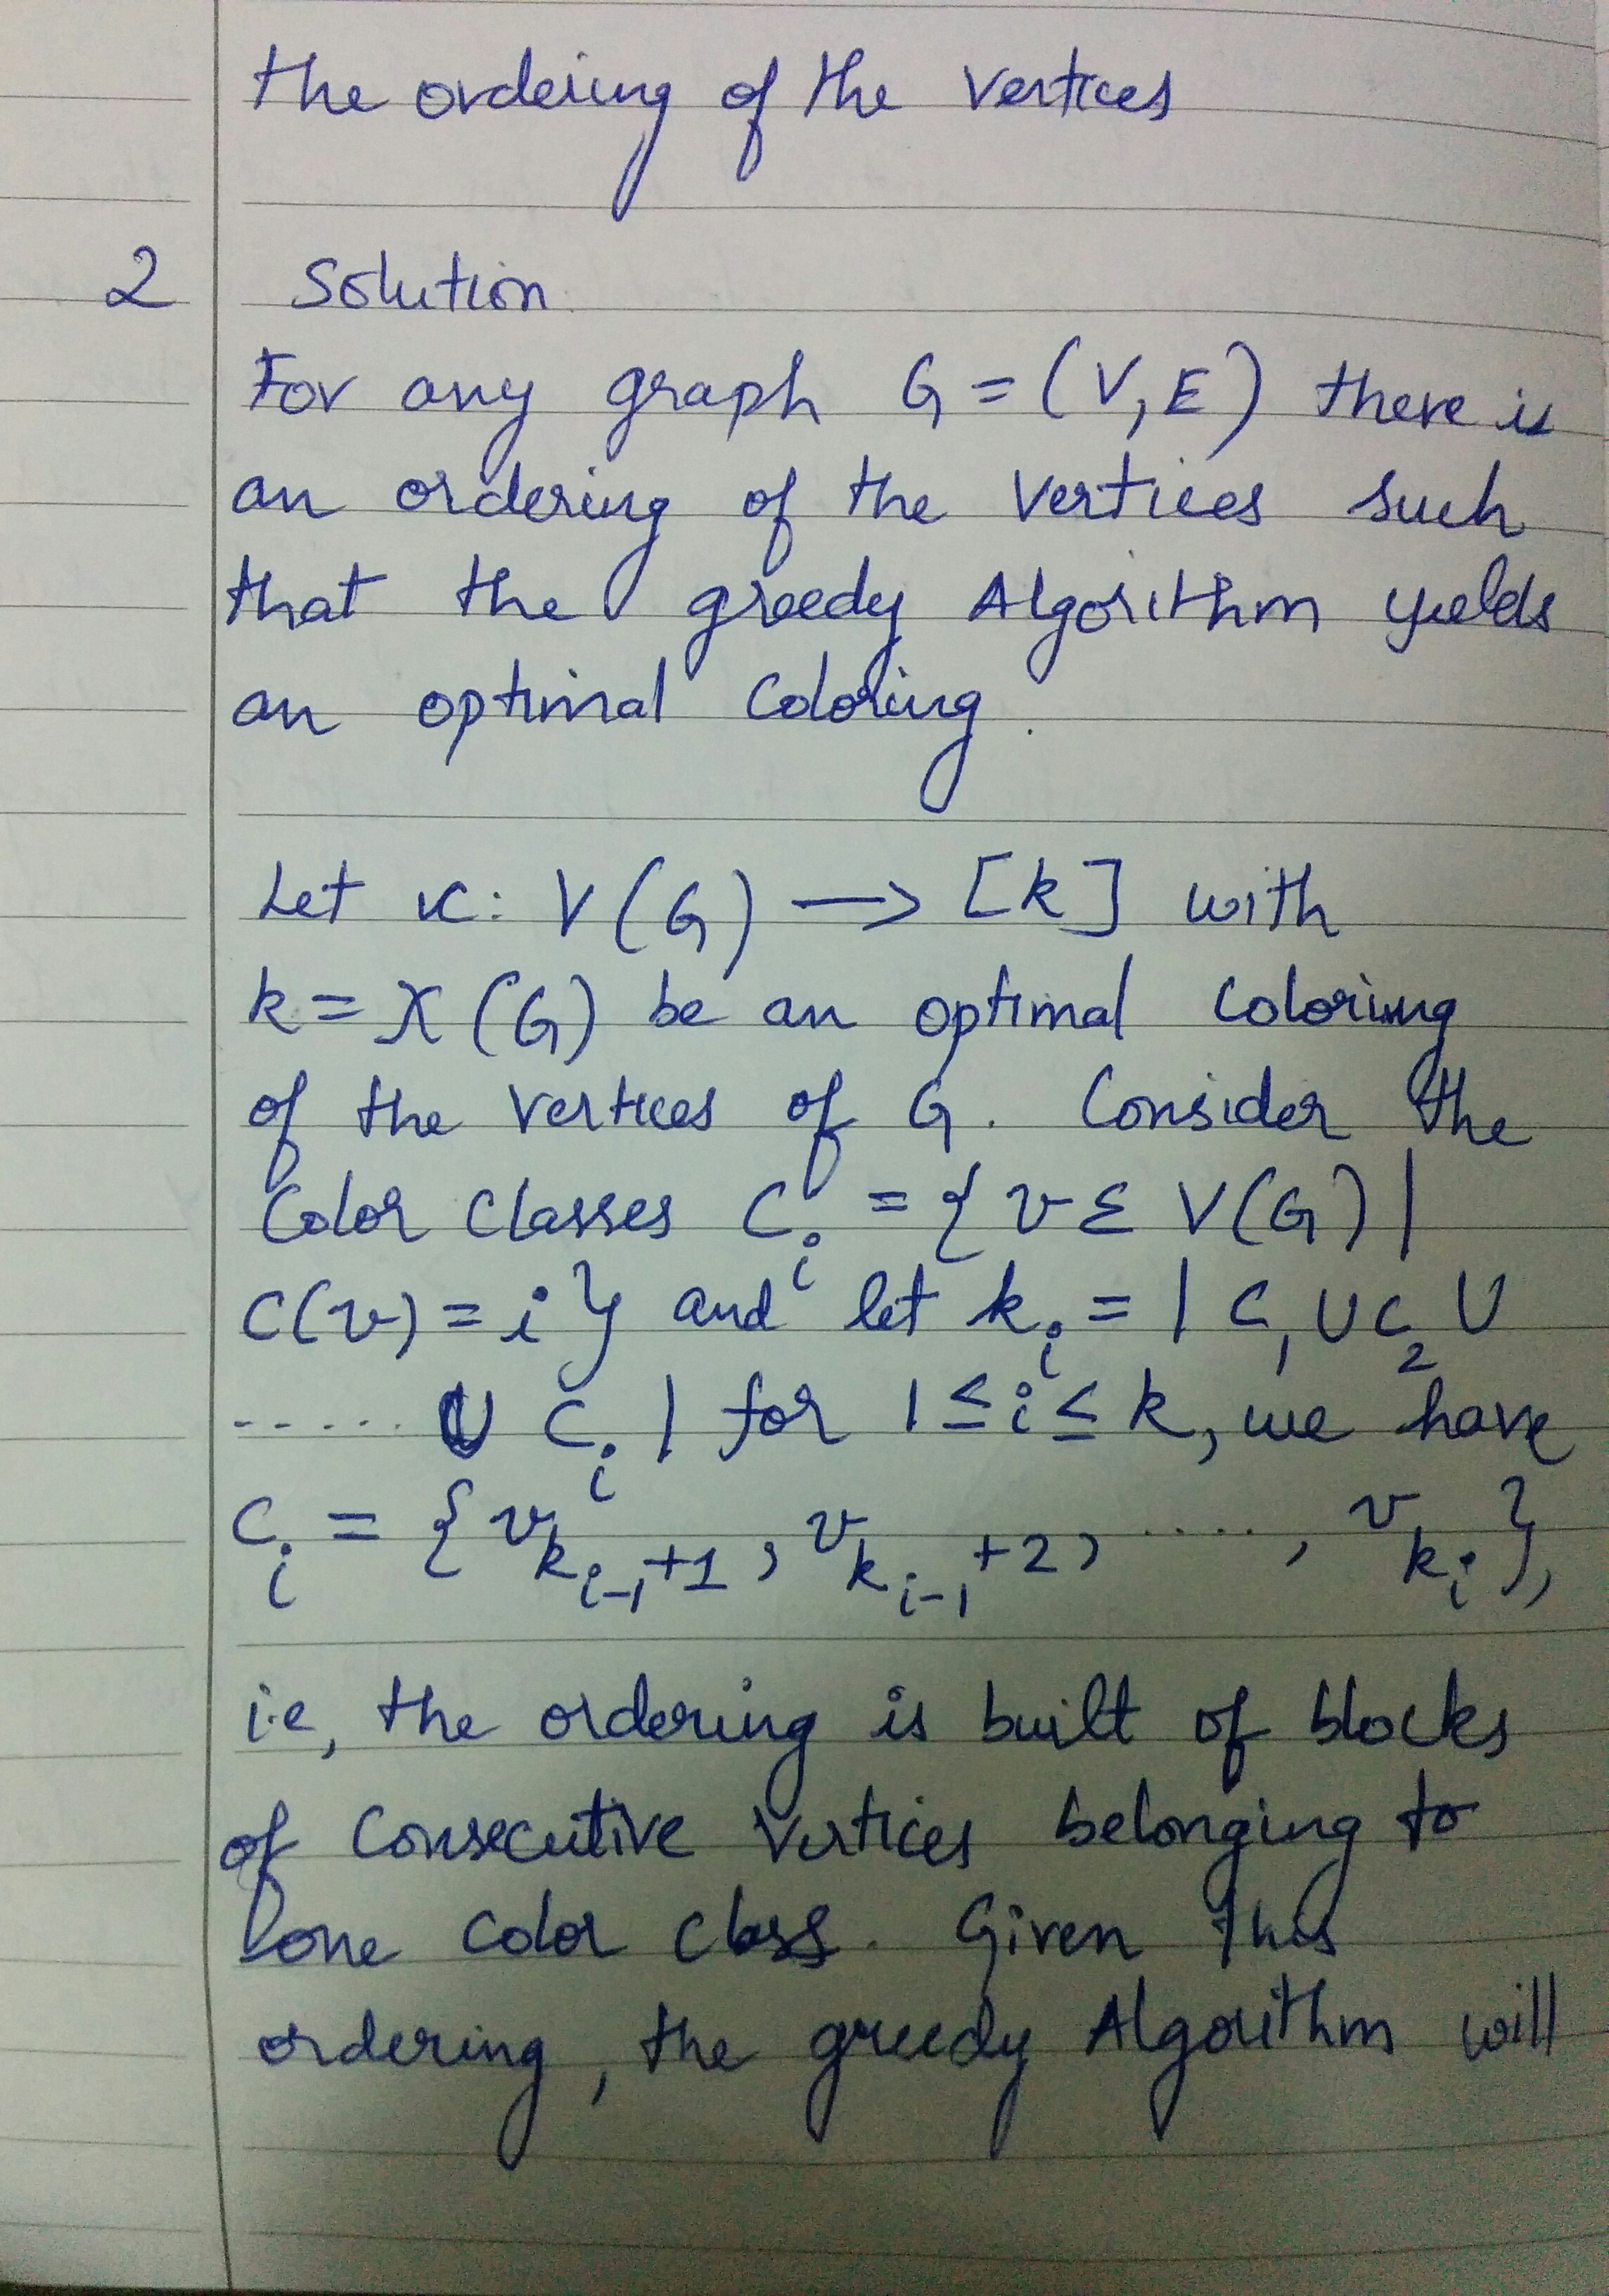 the ordering of the vertices
2 Solution
For any graph G = (V, E) there is
an ordering of the vertices such
that the greedy Algorithm yields
an optimal coloring.
Let c: V(G) → [k] with
k = χ(G) be an optimal coloring
of the vertices of G. Consider the
Color classes C_i = { v ε V(G) |
C(v) = i } and let k_i = | C_1 ∪ C_2 ∪
...... ∪ C_i | for 1 ≤ i ≤ k, we have
C_i = { v_{k_{i-1}+1}, v_{k_{i-1}+2}, ....., v_{k_i} },
i.e, the ordering is built of blocks
of consecutive vertices belonging to
one color class. Given this
ordering, the greedy Algorithm will